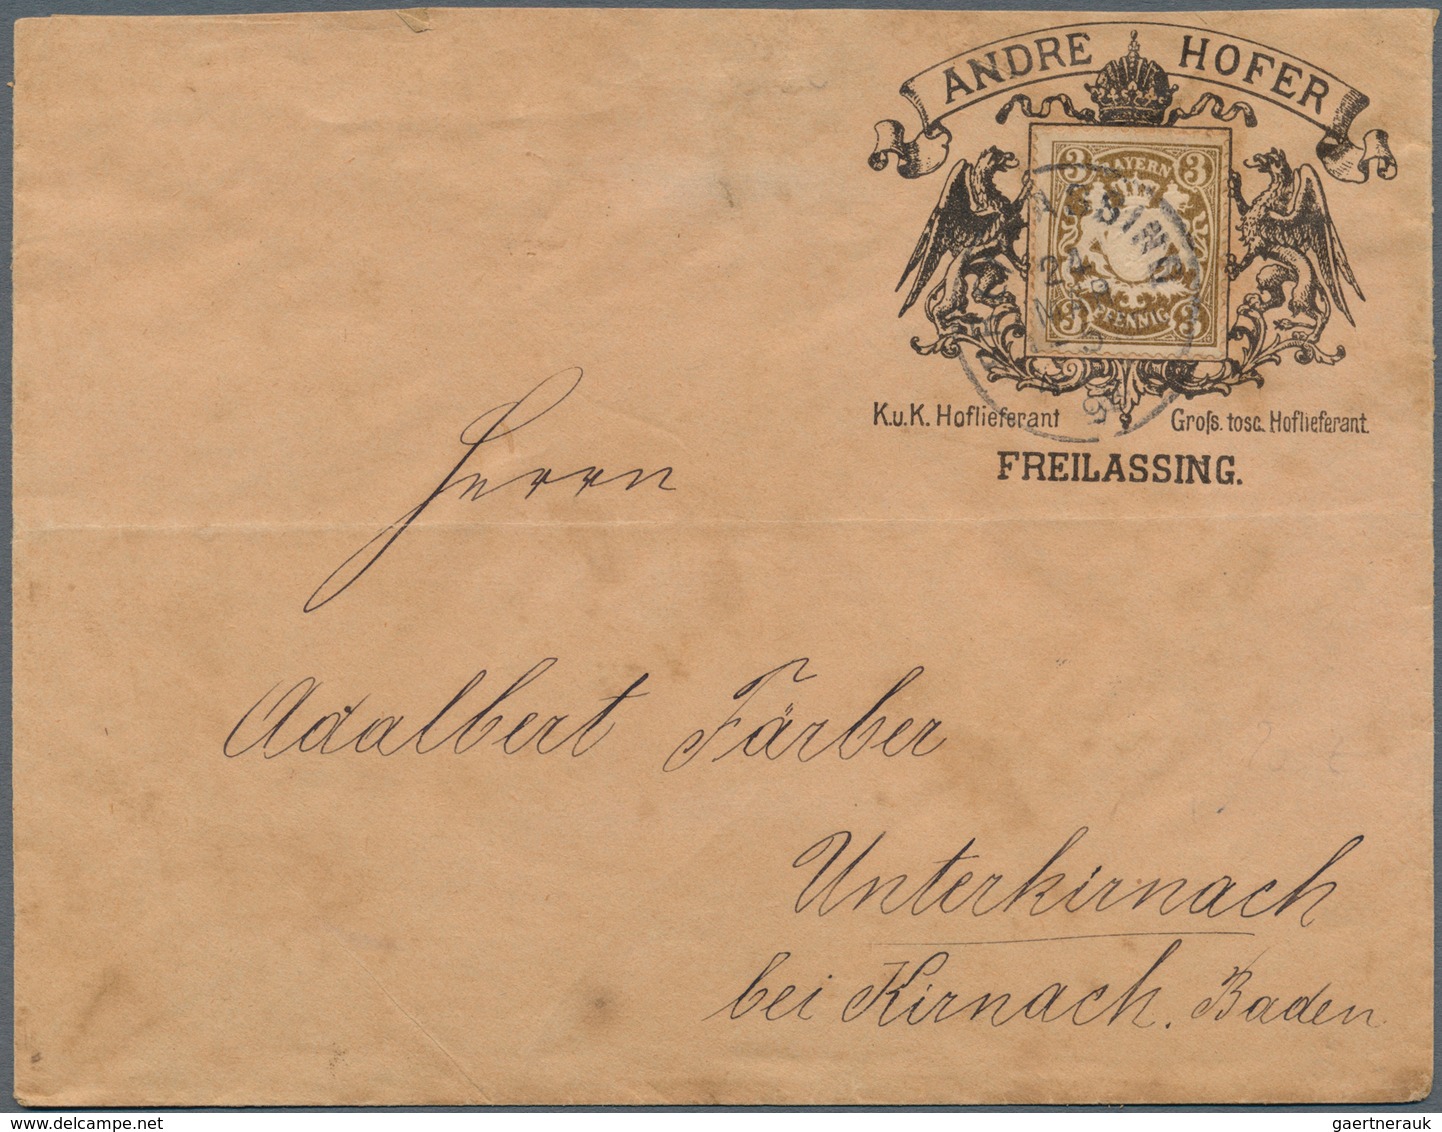 ANDRE HOFER
3 BAYERN 3
3 PFENNIG 3
K.u.K. Hoflieferant
Groſs. tosc. Hoflieferant.
FREILASSING.
Herrn
Adalbert Färber
Unterkirnach
bei Kirnach. Baden
gaertnerauk@delcampe.net